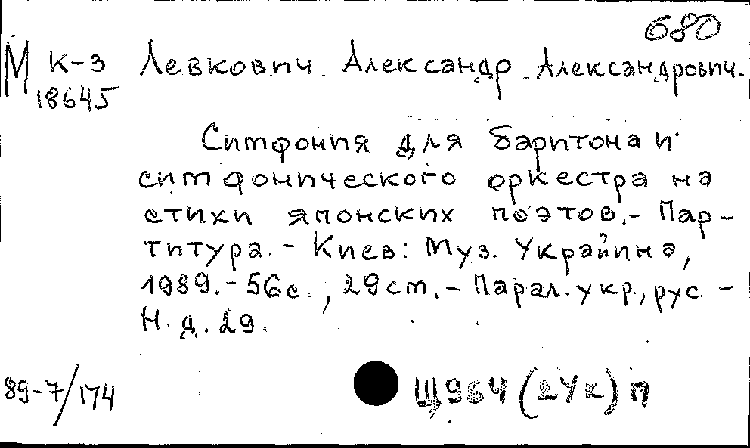 680
М К-3 Левкович Александр Александрович.
18645
Симфония для баритона и
симфонического оркестра на
стихи японских поэтов.- Пар-
титура.- Киев: Муз. Украйина,
1989.-56с., 29см.- Парал. укр, рус -
Н.д. 29.
89-7/174
Щ964(2Ук)п